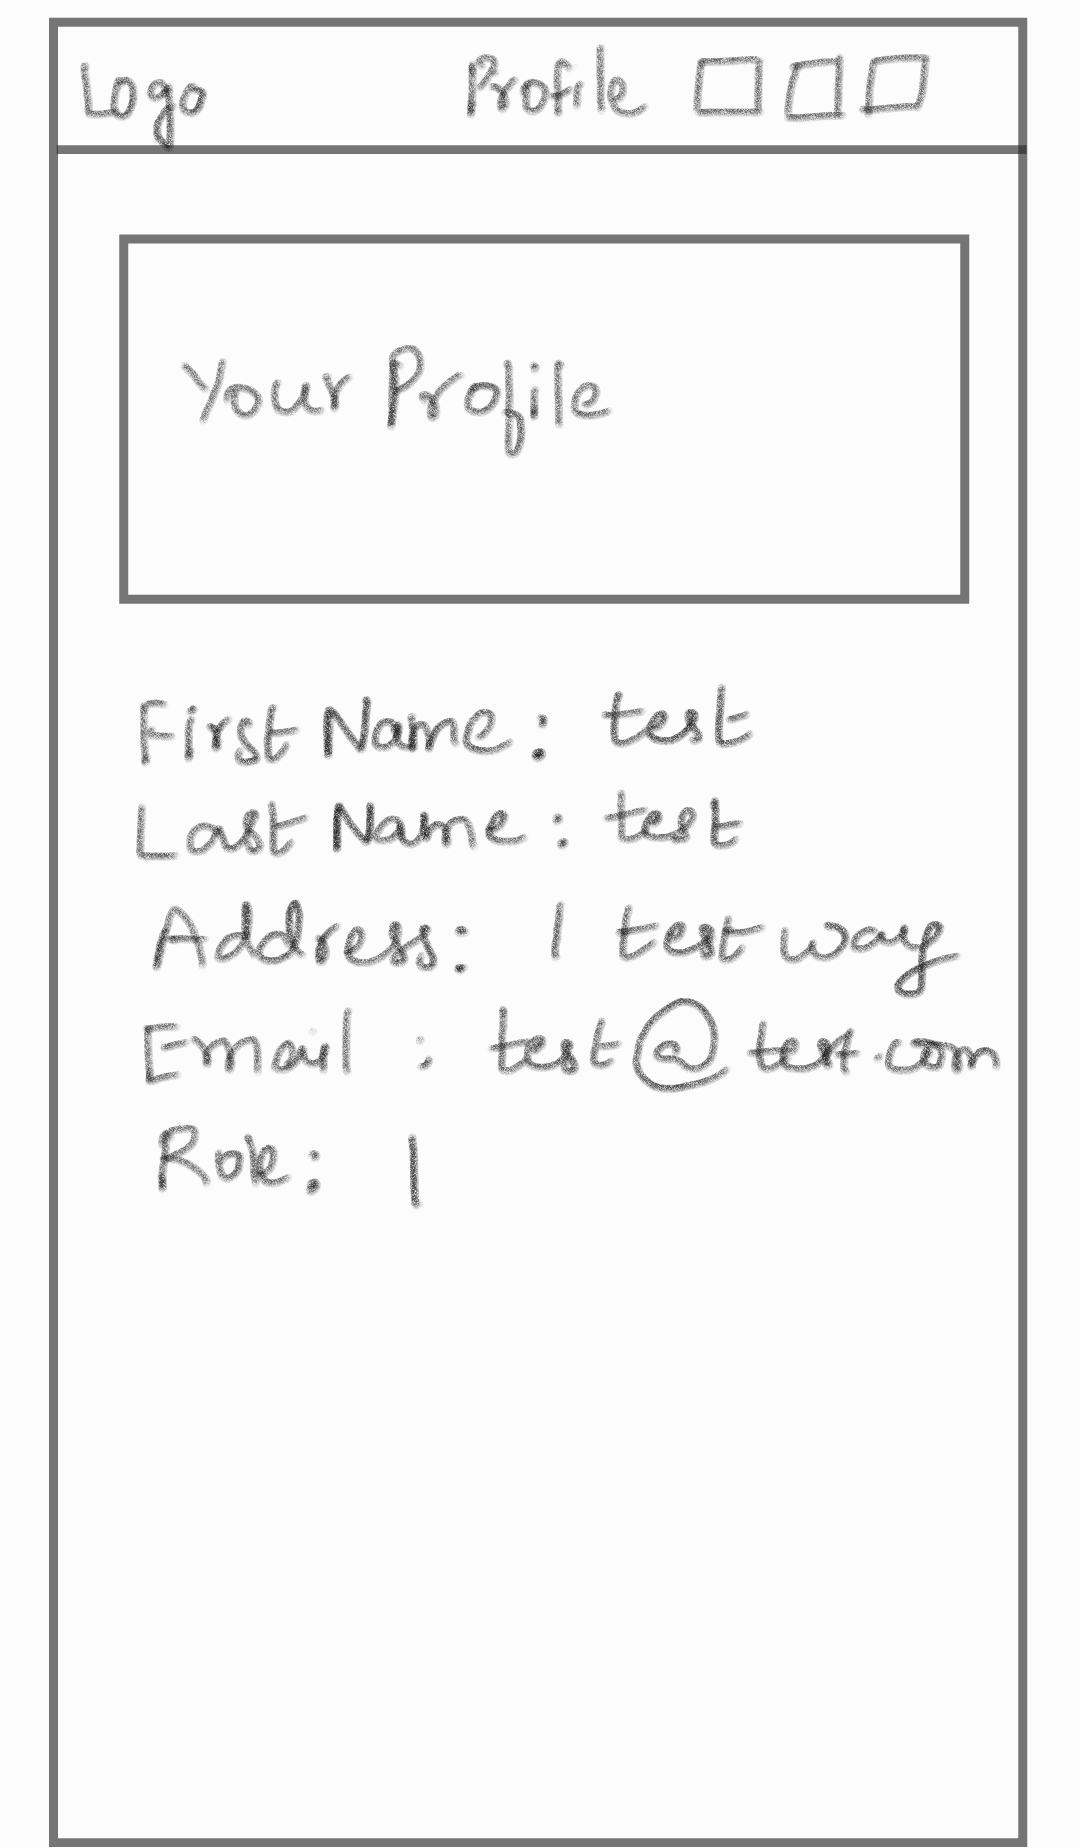 Logo Profile
Your Profile
First Name: test
Last Name: test
Address: 1 test way
Email: test@test.com
Role: 1